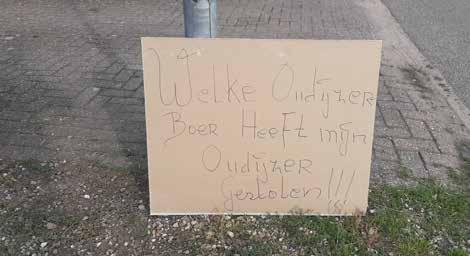 Welke Oudijzer
Boer Heeft mijn
Oudijzer
gestolen!!!